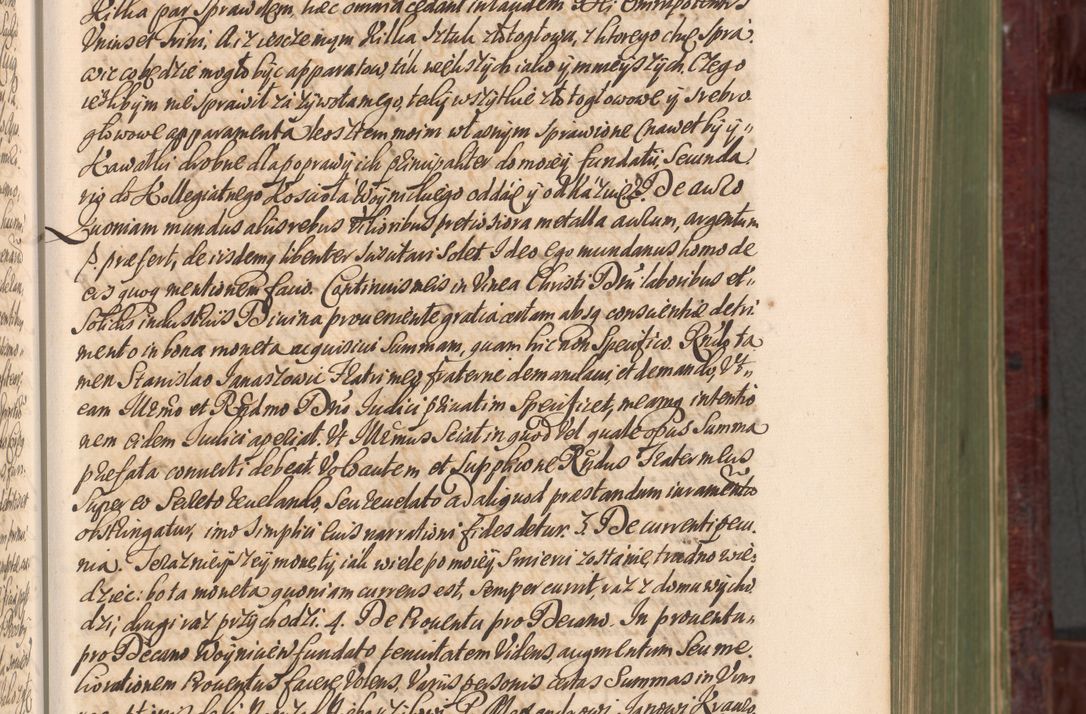 Kilka par Sprawiłem, hæc omnia cedant in laudem Dei Omnipotentis
Unius et Trini, A iż ieszcze mam Kilka Sztuk złotogłowu, z ktorego chcę Spra
wić co będzie mogło być apparatow, tak większych iako y mnieyszych. Czego
ieżlibym nie Sprawił za żywota mego, tedy wszytkie złotogłowowe y srebro
głowowe apparamenta kosztem moim własnym Sprawione (nawet by y
Kawałki drobne dla poprawy ich principaliter do moiey fundatij, Secunda
rio do Kollegiatnego Koscioła Woynickiego oddaię y odkazuię. 2. De auro
Quoniam mundus aliis rebus et rioribus pretiosiora metalla aurum, argentum
p. præfert, de iisdemq libenter susutari Solet. Ideo Ego mundanus homo de
eis quoq mentionem facio. Continuis meis in Vinea Christi Dni laboribus et
Solidis industriis Divina proveniente gratia certam absq conscientiæ detri
mento in bona moneta acquisivi Summam, quam hic non Specifico. Rndo ta
men Stanislao Janaszowic Fratri meo fraterne demandavi, et demando, Ut
eam Illrmo et Rndmo Dno Judici privatim Specificet, meamq intentio
nem eidem Judici aperiat. Ut Illrmus Sciat in quod vel quale opus Summa
præfata converti debeat. Volo autem et Supplico ne Rndus Frater meus
Super eo Secreto revelando, Seu revelato ad aliquod præstandum iuramento
obstringatur, imo simplici eius narrationi fides detur. 3. De currenti pecu
nia. Teraznieyszey monety, iak wiele po moiey Smierci zostanie, trudno wie
dziec: bo ta moneta quoniam currens est, Semper currit, raz z domu wycho
dzi, drugi raz przychodzi. 4. De Proventu pro Decano. In proventu
pro Decano Woynicien fundato tenuitatem Videns, augmentum Seu me
liorationem Proventus facere Volens, Variis personis certas Summas in Vim